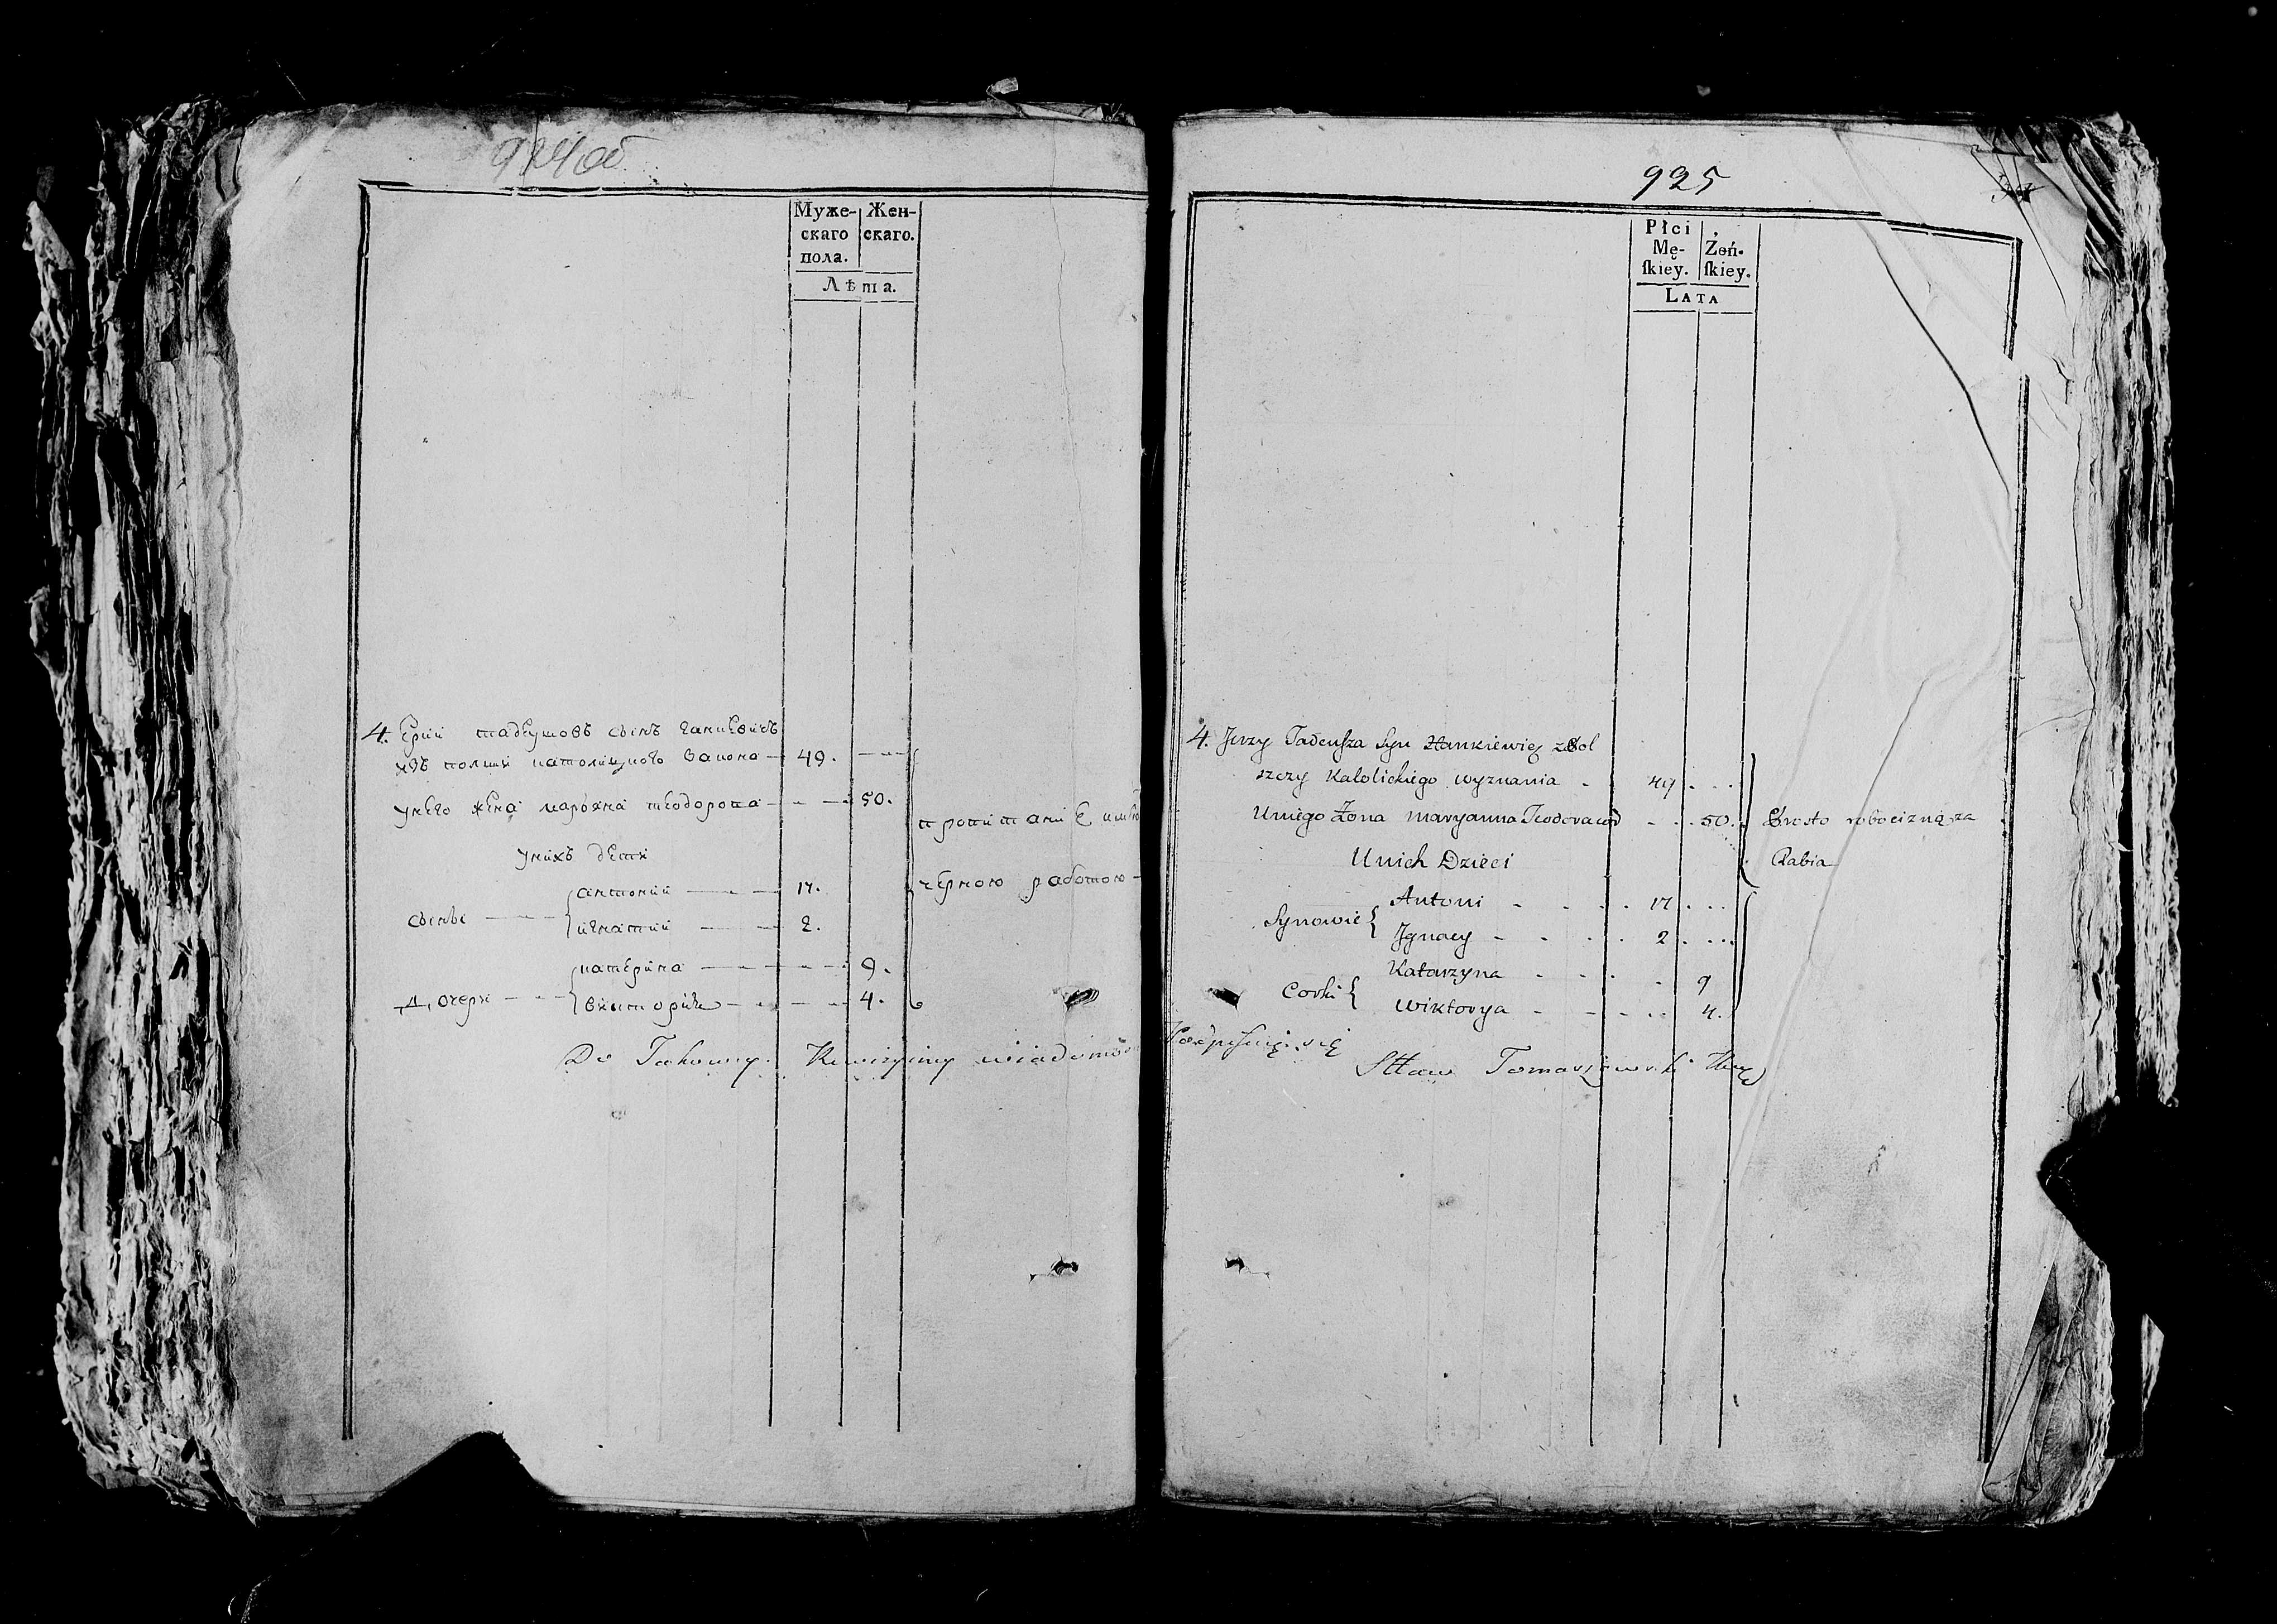 924об
Муже-
скаго
пола.
Жен-
скаго.
Лѣта.
4. Ерїй тадеушовъ сынъ ганкевичъ
изъ полши католицкого закона 49.
унего жена марꙗна теодорова 50.
унихъ дети
сыны
антонїй 17.
игнатїй 2.
дочери
катерина 9.
викторїꙗ 4.
пропитанїе имѣю
чѣрною работою
Do Takowey Rewizyiney wiadomości
925
Płci
Mę-
ſkiey.
Żeń-
ſkiey.
LATA
4. Jerzy Tadeuſza Syn Hankiewicz z Pol
szczy Katolickiego wyznania 49
Uniego Żona maryanna Teodorowa 50
Unich Dzieci
Synowie
Antoni 17
Jgnacy 2
Corki
Katarzyna 9
Wiktorya 4.
Prosto robocizną za
Rabia
Podpiſuię się
Sttaw Tomaszewski